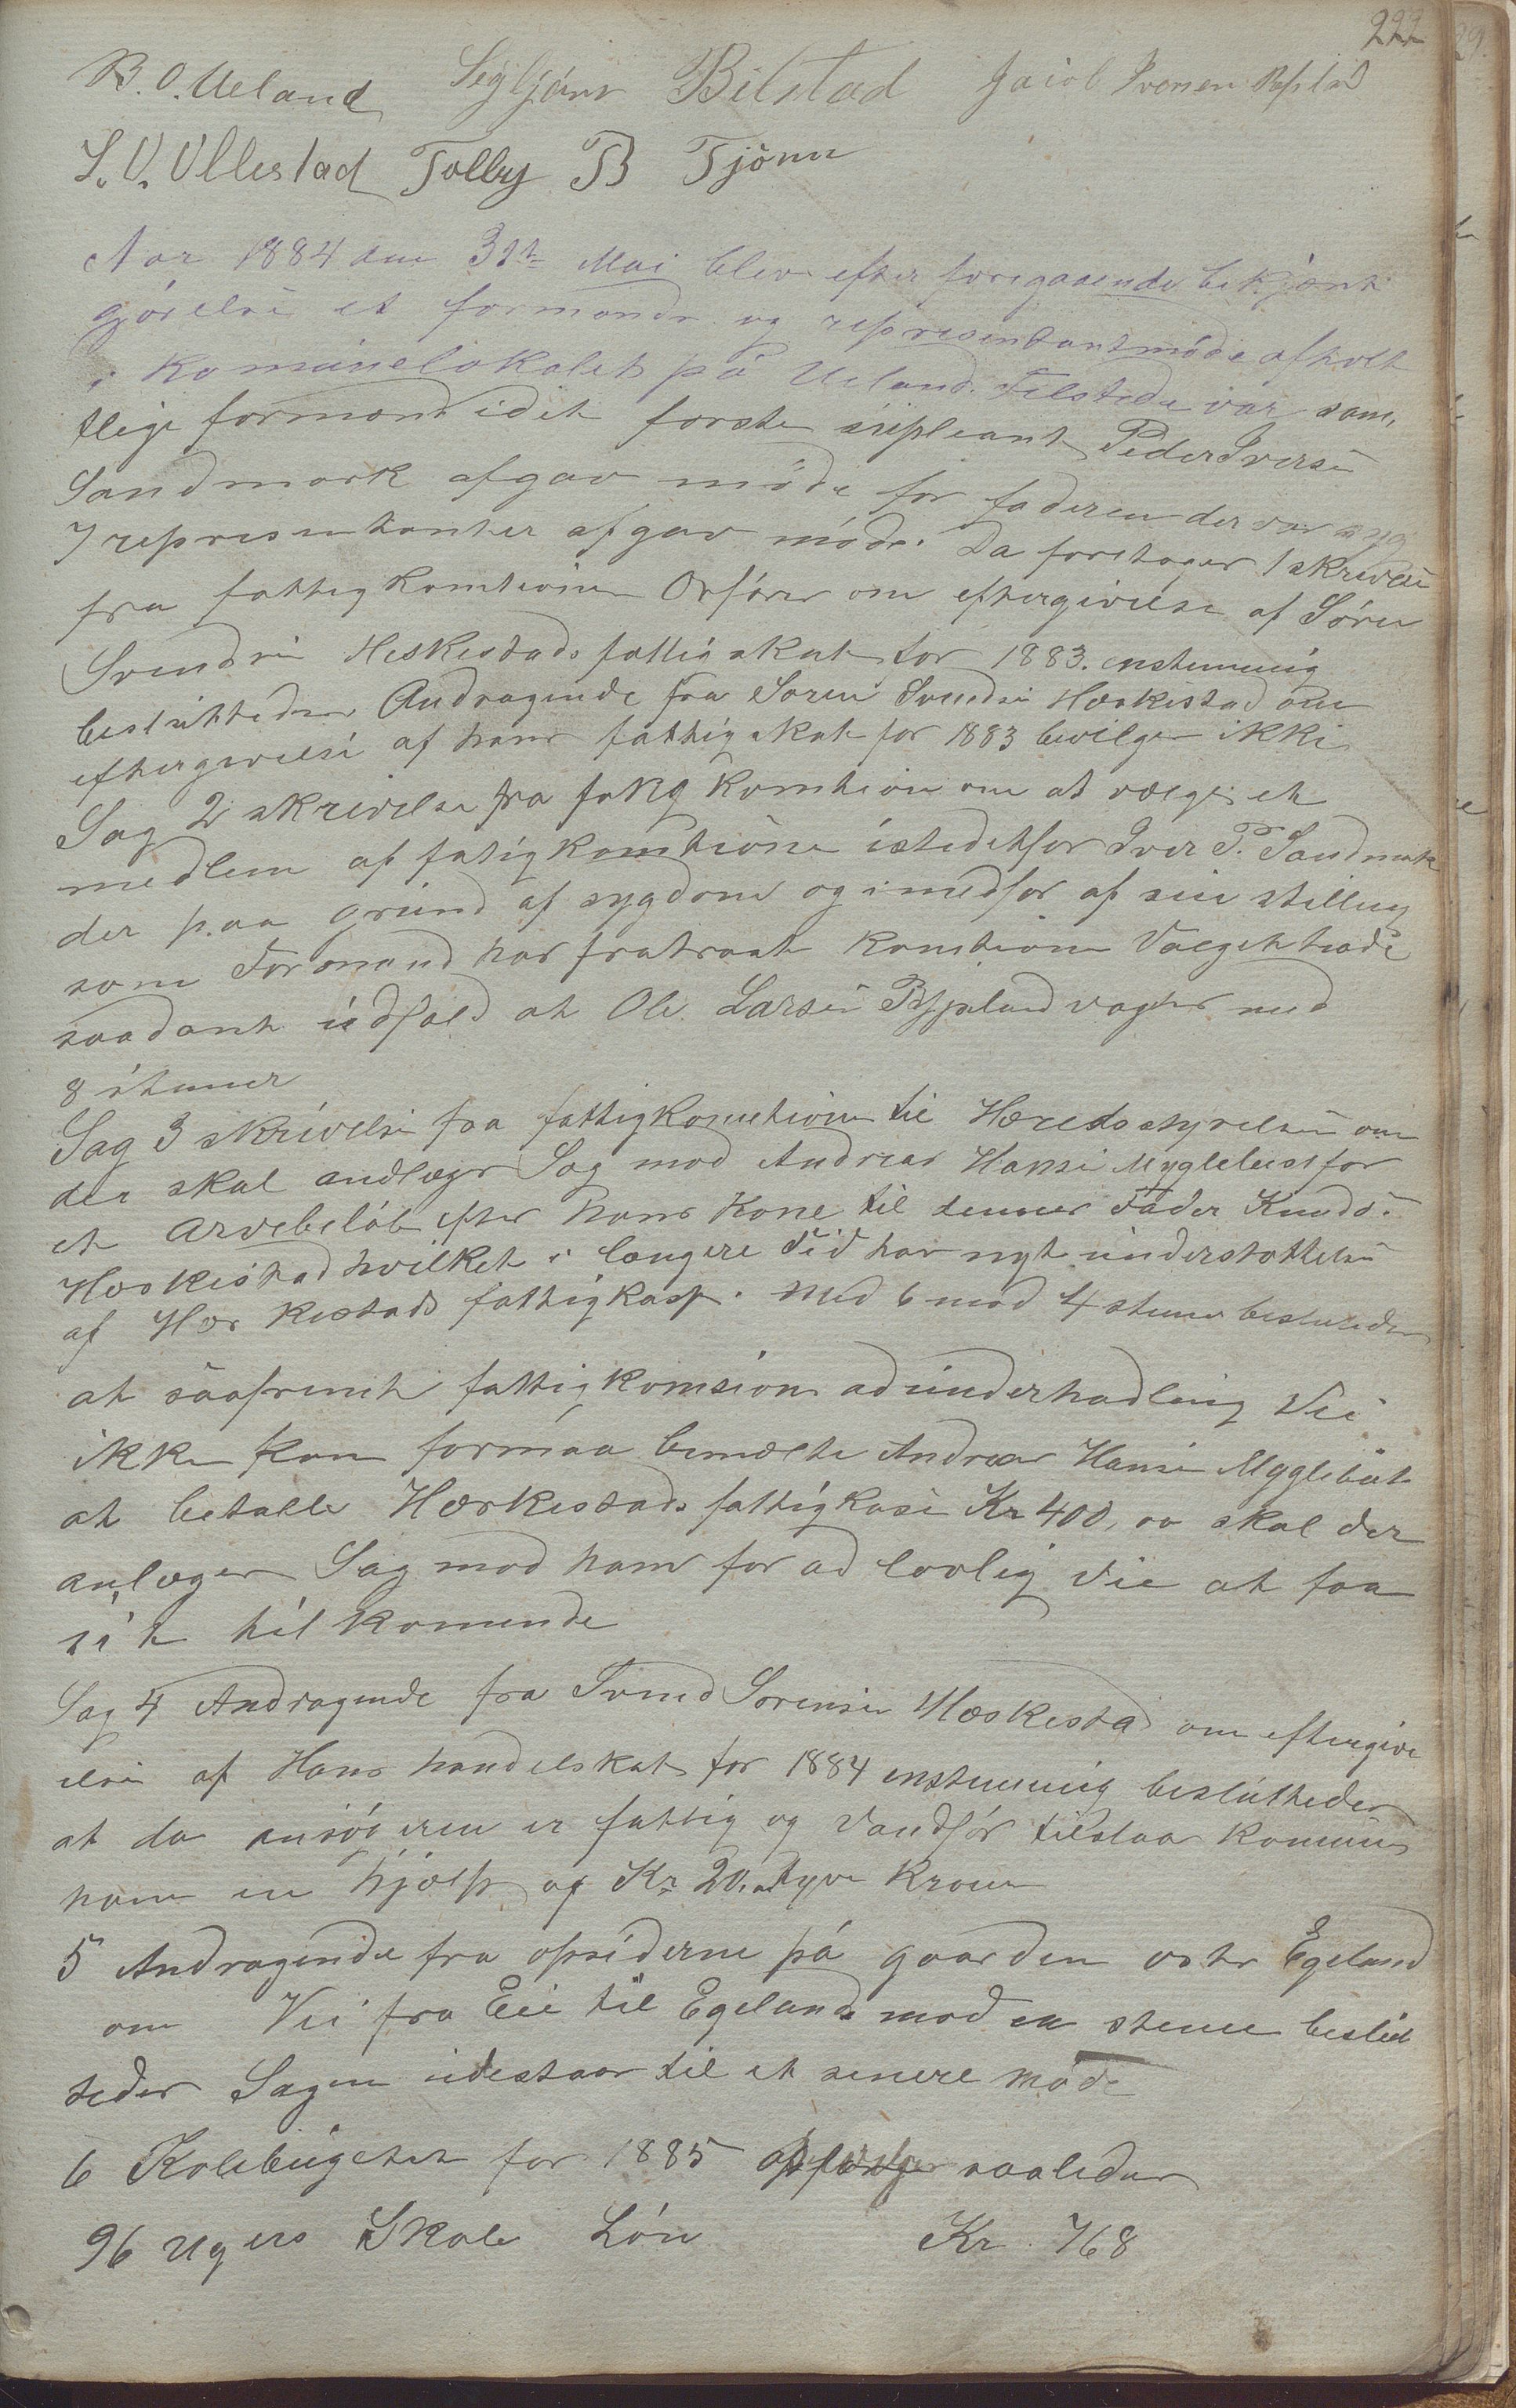 222
B. O. Ueland Segbjörn Bilstad Jacob Iversen Refstad
S. O. Ollestad Tolly B Tjönn
Aar 1884 den 31te Mai blev efter foregaaende bekjænt
gjörelse et formonds og representantmöde afholt
i Komunelokalet på Ueland. Tilstede var sam,
tlige formænd idet forste supleant Peder Iverse
Sandmark afgav möde for faderen der var syg
7 representanter afgav möde. Da foretoges 1 skrivelse
fra fattigkomtionen Orförer om eftergivelse af Sören
Svendsen Heskestads fattigskat for 1883. enstemmig
besluttedes Andragende fra Sören Svendsen Hæskestad om
eftergivelse af hans fattigskat for 1883 bevilges ikke
Sag 2 skrivelse fra fatig komtion om at vælge et
medlem af fatigkomtione istedetfor Iver P. Sandmark
der paa grund af sygdom og i medfor af sin stilling
som Formand har fratraat komtionen Valget hade
saadant udfald at Ole Larsen Bjpeland valgtes med
8 stemmer
Sag 3 skrivelse fra fattigkomtionen til Heredsstyrelsen om
der skal andlæges Sag mod Andreas Hansen Myglebust for
et Arvebelöb efter hans Kone til dennes Fader Knuds.
Hæskestad hvilket i længere Tid har nyt understottelse
af Hæskestads fattigkasse. Med 6 mod 4 stemer besluttedes
at saafremt fattigkomsion ad underhadling Vei
ikke kan formaa bemelte Andreas Hansen Myglebust
at betalle Hæskestads fattigkase Kr 400, oo skal der
anlæges Sag mod ham for ad lovlig vie at faa
sit tilkomende
Sag 4 Andragende fra Svend Sörensen Hæskestad om eftergive
else af Hans handelskat for 1884 enstemmig beslutteder
at da ansögeren er fattig og Vandför tilstaar Komunen
ham en hjælp af Kr 20. tyve Kroner
5 Andragende fra opsiderne på gaarden vstr Egeland
om Vei fra Eie til Egeland. mod en steme beslut
tedes Sagen udestaar til et senere möde
6 Skolebugetet for 1885 saaledes
96 Ugers Skole Lön Kr. 768